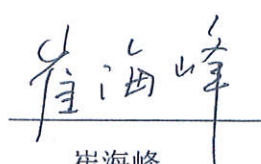 崔海峰
崔海峰